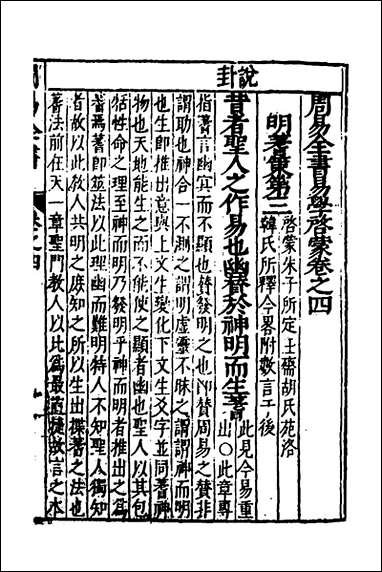 說卦
周易全書易學啓蒙卷之四
啓蒙朱子所定玉齋胡氏苑洛
明蓍策第三
韓氏所釋今畧附數言于後
昔者聖人之作易也幽賛於神明而生蓍
此見今易重
出○此章專
指蓍言幽㝠而不顯也賛發明之也即賛周易之賛非
謂助也神合一不測之謂明虛靈不昧之謂謂神而明
也生即推出意與上文生變化下文生爻字並同蓍神
物也天地能生之而不能使之顯者幽也聖人以其包
括性命之理至神而明乃發明乎神而明者推出之爲
蓍焉蓍即筮法以此理幽而難明特人不知聖人獨知
者故以此敎人共明之庻知之所以生出揲蓍之法也
蓍法前在天一章聖門教人以此爲最的捷故言之本